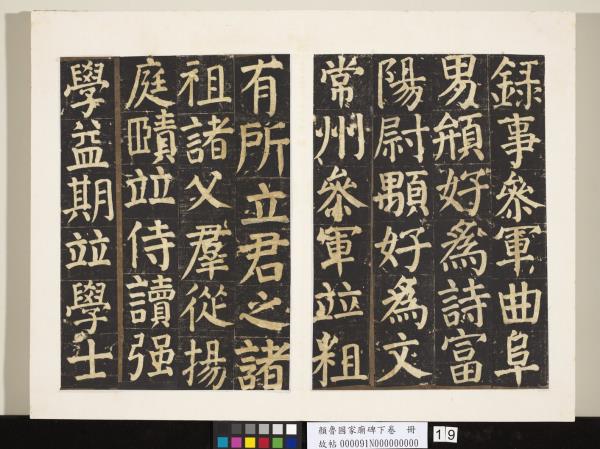 錄事參軍曲阜
男頠好為詩富
陽尉顒好為文
常州參軍竝粗
有所立君之諸
祖諸父羣從揚
庭頤竝侍讀强
學益期竝學士
顏魯國家廟碑下卷 冊
故帖 000091N000000000
19